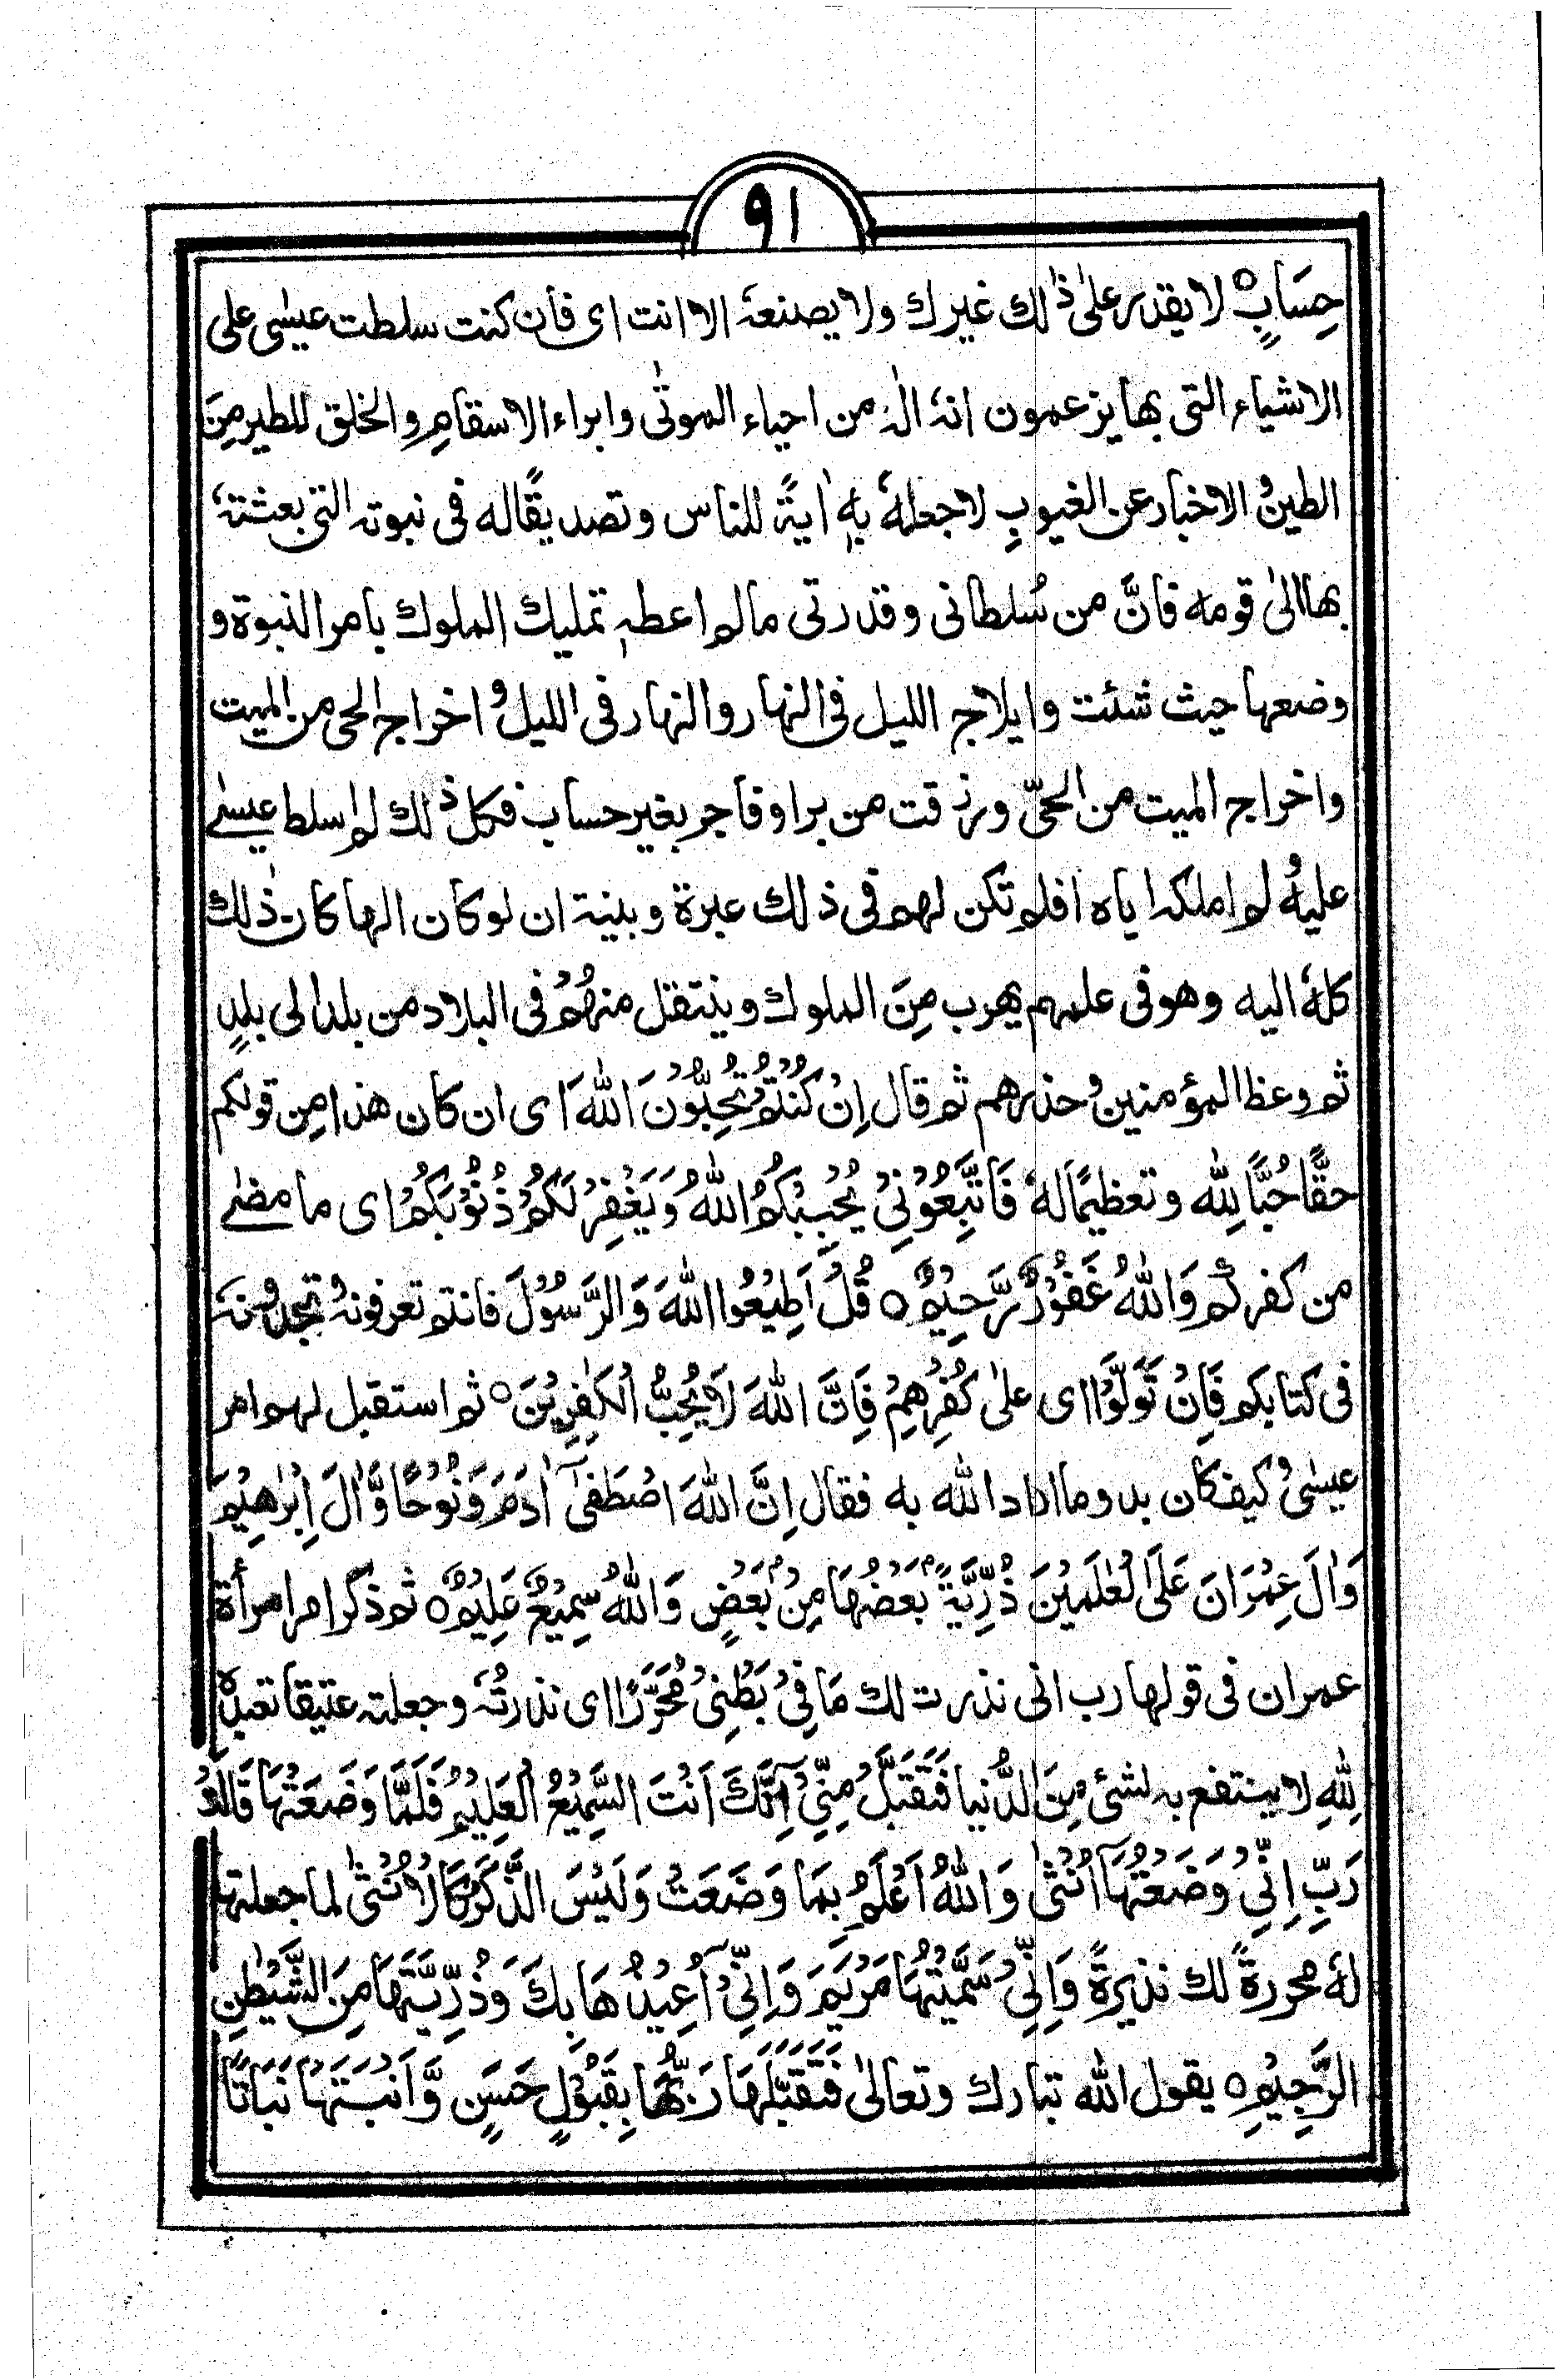 ٩١
حِسَابٍ ○ لا يقدر علىٰ ذٰلك غيرك ولا يصنعهٗ الا انت اى فان كنت سلطت عيسٰى على
الاشياء التى بها يزعمون انهٗ الٰہ من احياء الموتٰى وابراء الاسقامِ والخلق للطير مِنَ
الطين و الاخبار عن الغيوبِ لاجعلهٗ بهٖ اٰيةً للناس وتصديقًا له فى نبوته التى بعثتهٗ
بها الىٰ قومه فانَّ من سُلطانى وقدرتى مالم اعطهٖ تمليك الملوك بامر النبوة و
وضعها حيث شئت وايلاج الليل فى النهار والنهار فى الليل و اخراج الحى من الميت
واخراج الميت من الحىّ ورزقت من براوفاجر بغير حساب فكل ذٰلك لم اسلط عيسٰى
عليه و لم املكه اياه افلم تكن لهم فى ذلك عبرة وبينة ان لو كان الها كان ذٰلك
كلهٗ اليه وهو فى علمهم يهرب مِنَ الملوك وينتقل منهُمْ فى البلاد من بلد الى بلدٍ
ثم وعظ المؤمنين و حذرهم ثم قال اِنْ كُنْتُمْ تُحِبُّوْنَ اللّٰهَ اى ان كان هذا مِن قولكم
حقًّا حُبًّا لِلّٰه وتعظيمًا لهٗ فَاتَّبِعُوْنِىْ يُحْبِبْكُمُ اللّٰهُ وَيَغْفِرْ لَكُمْ ذُنُوْبَكُمْ اى ما مضٰى
من كفركم وَاللّٰهُ غَفُوْرٌ رَّحِيْمٌ ○ قُلْ اَطِيْعُوا اللّٰهَ وَالرَّسُوْلَ فانتم تعرفونهٗ و تجدونهٗ
فى كتابكم فَاِنْ تَوَلَّوْا اى علىٰ كُفْرِهِمْ فَاِنَّ اللّٰهَ لَا يُحِبُّ الْكٰفِرِيْنَ ○ ثم استقبل لهم امر
عيسٰى و كيف كان بدو ما اراد اللّٰه به فقال اِنَّ اللّٰهَ اصْطَفٰىٓ اٰدَمَ وَنُوْحًا وَّاٰلَ اِبْرٰهِيْمَ
وَاٰلَ عِمْرَانَ عَلَى الْعٰلَمِيْنَ ذُرِّيَّةً بَعْضُهَا مِنْ بَعْضٍ وَاللّٰهُ سَمِيْعٌ عَلِيْمٌ ○ ثم ذكر امر امرأة
عمران فى قولها رب انى نذرت لك مَا فِىْ بَطْنِىْ مُحَرَّرًا اى نذرتُهٗ وجعلته عتيقا تعبدهٗ
لِلّٰهِ لا ينتفع به لشئ مِنَ الدُّنيا فَتَقَبَّلْ مِنِّىْ اِنَّكَ اَنْتَ السَّمِيْعُ الْعَلِيْمُ فَلَمَّا وَضَعَتْهَا قَالَتْ
رَبِّ اِنِّىْ وَضَعْتُهَآ اُنْثٰى وَاللّٰهُ اَعْلَمُ بِمَا وَضَعَتْ وَلَيْسَ الذَّكَرُ كَالْاُنْثٰى لما جعلتها
لهٗ محررةً لك نذيرةً وَاِنِّىْ سَمَّيْتُهَا مَرْيَمَ وَاِنِّىْٓ اُعِيْذُهَا بِكَ وَذُرِّيَّتَهَا مِنَ الشَّيْطٰنِ
الرَّجِيْمِ ○ يقول اللّٰه تبارك وتعالىٰ فَتَقَبَّلَهَا رَبُّهَا بِقَبُوْلٍ حَسَنٍ وَّاَنْبَتَهَا نَبَاتًا